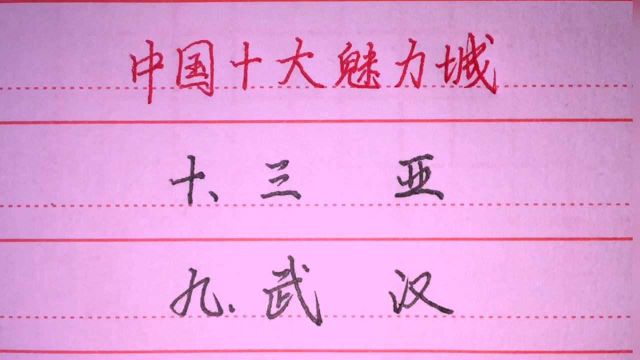 中国十大魅力城
十、三 亚
九.武 汉